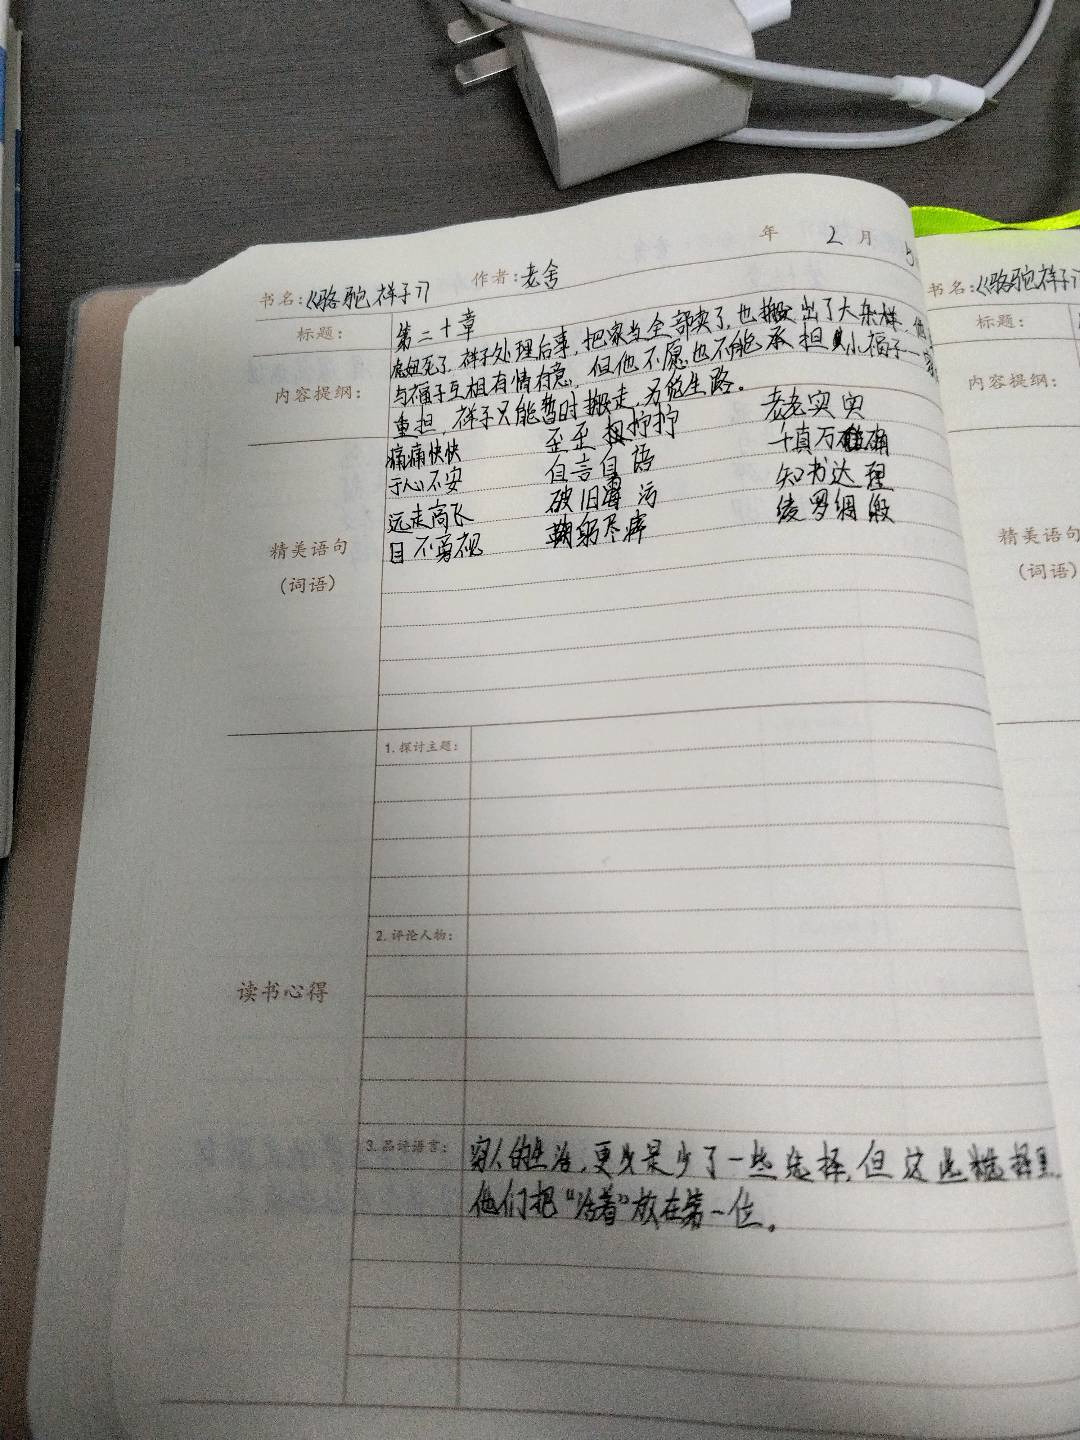 年 2 月 5
书名:《骆驼祥子》 作者:老舍
标题: 第二十章
虎妞死了,祥子处理后事,把家当全部卖了,也搬出了大杂院,他
内容提纲: 与福子互相有情有意,但他不愿也不能承担小福子一家
重担,祥子只能暂时搬走,另觅生路。
痛痛快快 歪歪拧拧 老老实实
于心不安 自言自语 千真万确
远走高飞 破旧霉污 知书达理
目不勇视 鞠躬尽瘁 绫罗绸缎
精美语句
(词语)
读书心得
1.探讨主题:
2.评论人物:
3.品评语言: 穷人的生活,更多是少了一些选择,但这些选择里,
他们把“活着”放在第一位。
书名:《骆驼祥子》
标题:
内容提纲:
精美语句
(词语)